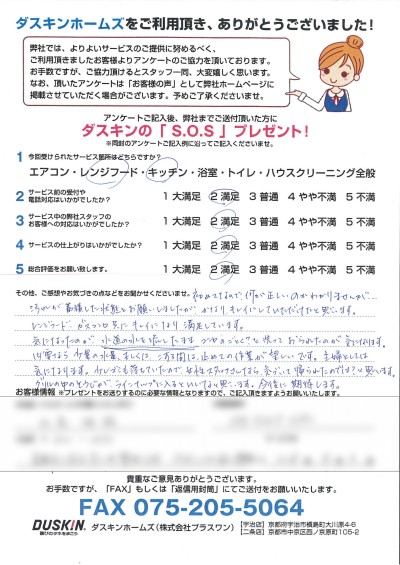 ダスキンホームズをご利用頂き、ありがとうございました!
弊社では、よりよいサービスのご提供に努めるべく、
ご利用頂きましたお客様よりアンケートのご協力を頂いております。
お手数ですが、ご協力頂けるとスタッフ一同、大変嬉しく思います。
なお、頂いたアンケートは「お客様の声」として弊社ホームページに
掲載させていただく場合がございます。予めご了承くださいませ。
アンケートご記入後、弊社までご送付頂いた方に
ダスキンの「S.O.S」プレゼント!
※同封のアンケートご記入例に沿ってご記入くださいませ。
1 今回受けられたサービス箇所はどちらですか?
エアコン・レンジフード・キッチン・浴室・トイレ・ハウスクリーニング全般
2 サービス前の受付や
電話対応はいかがでしたか? 1 大満足 2 満足 3 普通 4 やや不満 5 不満
3 サービス中の弊社スタッフの
お客様への対応はいかがでしたか? 1 大満足 2 満足 3 普通 4 やや不満 5 不満
4 サービスの仕上がりはいかがでしたか? 1 大満足 2 満足 3 普通 4 やや不満 5 不満
5 総合評価をお願い致します。 1 大満足 2 満足 3 普通 4 やや不満 5 不満
その他、ご感想やお気づきの点などをお聞かせくださいませ。初めてなので、何が正しいのかわかりませんが…
蓄積した状態でお願いしましたが かなりキレイにしていただけたと思います。
レンジフード、ガスコンロ 共に キレイになり 満足しています。
気になったのが 水道の水を流したまま つけおき 洗っておられたのが 気になります。
少量の水量、もしくは 止めての作業が望しいです。主婦としては
気になります。
グリルの中のそうじが ラインナップに入るといいなと思います。今後に 期待します。
お客様情報 ※プレゼントをお送りするのに必要な情報となりますので、ご記入頂きますようお願いいたします。
貴重なご意見ありがとうございます。
お手数ですが、「FAX」もしくは「返信用封筒」にてご送付をお願いいたします。
FAX 075-205-5064
DUSKIN 喜びのタネをまこう ダスキンホームズ(株式会社プラスワン) 【宇治店】京都府宇治市槙島町大川原4-6
【二条店】京都市中京区西ノ京原町105-2